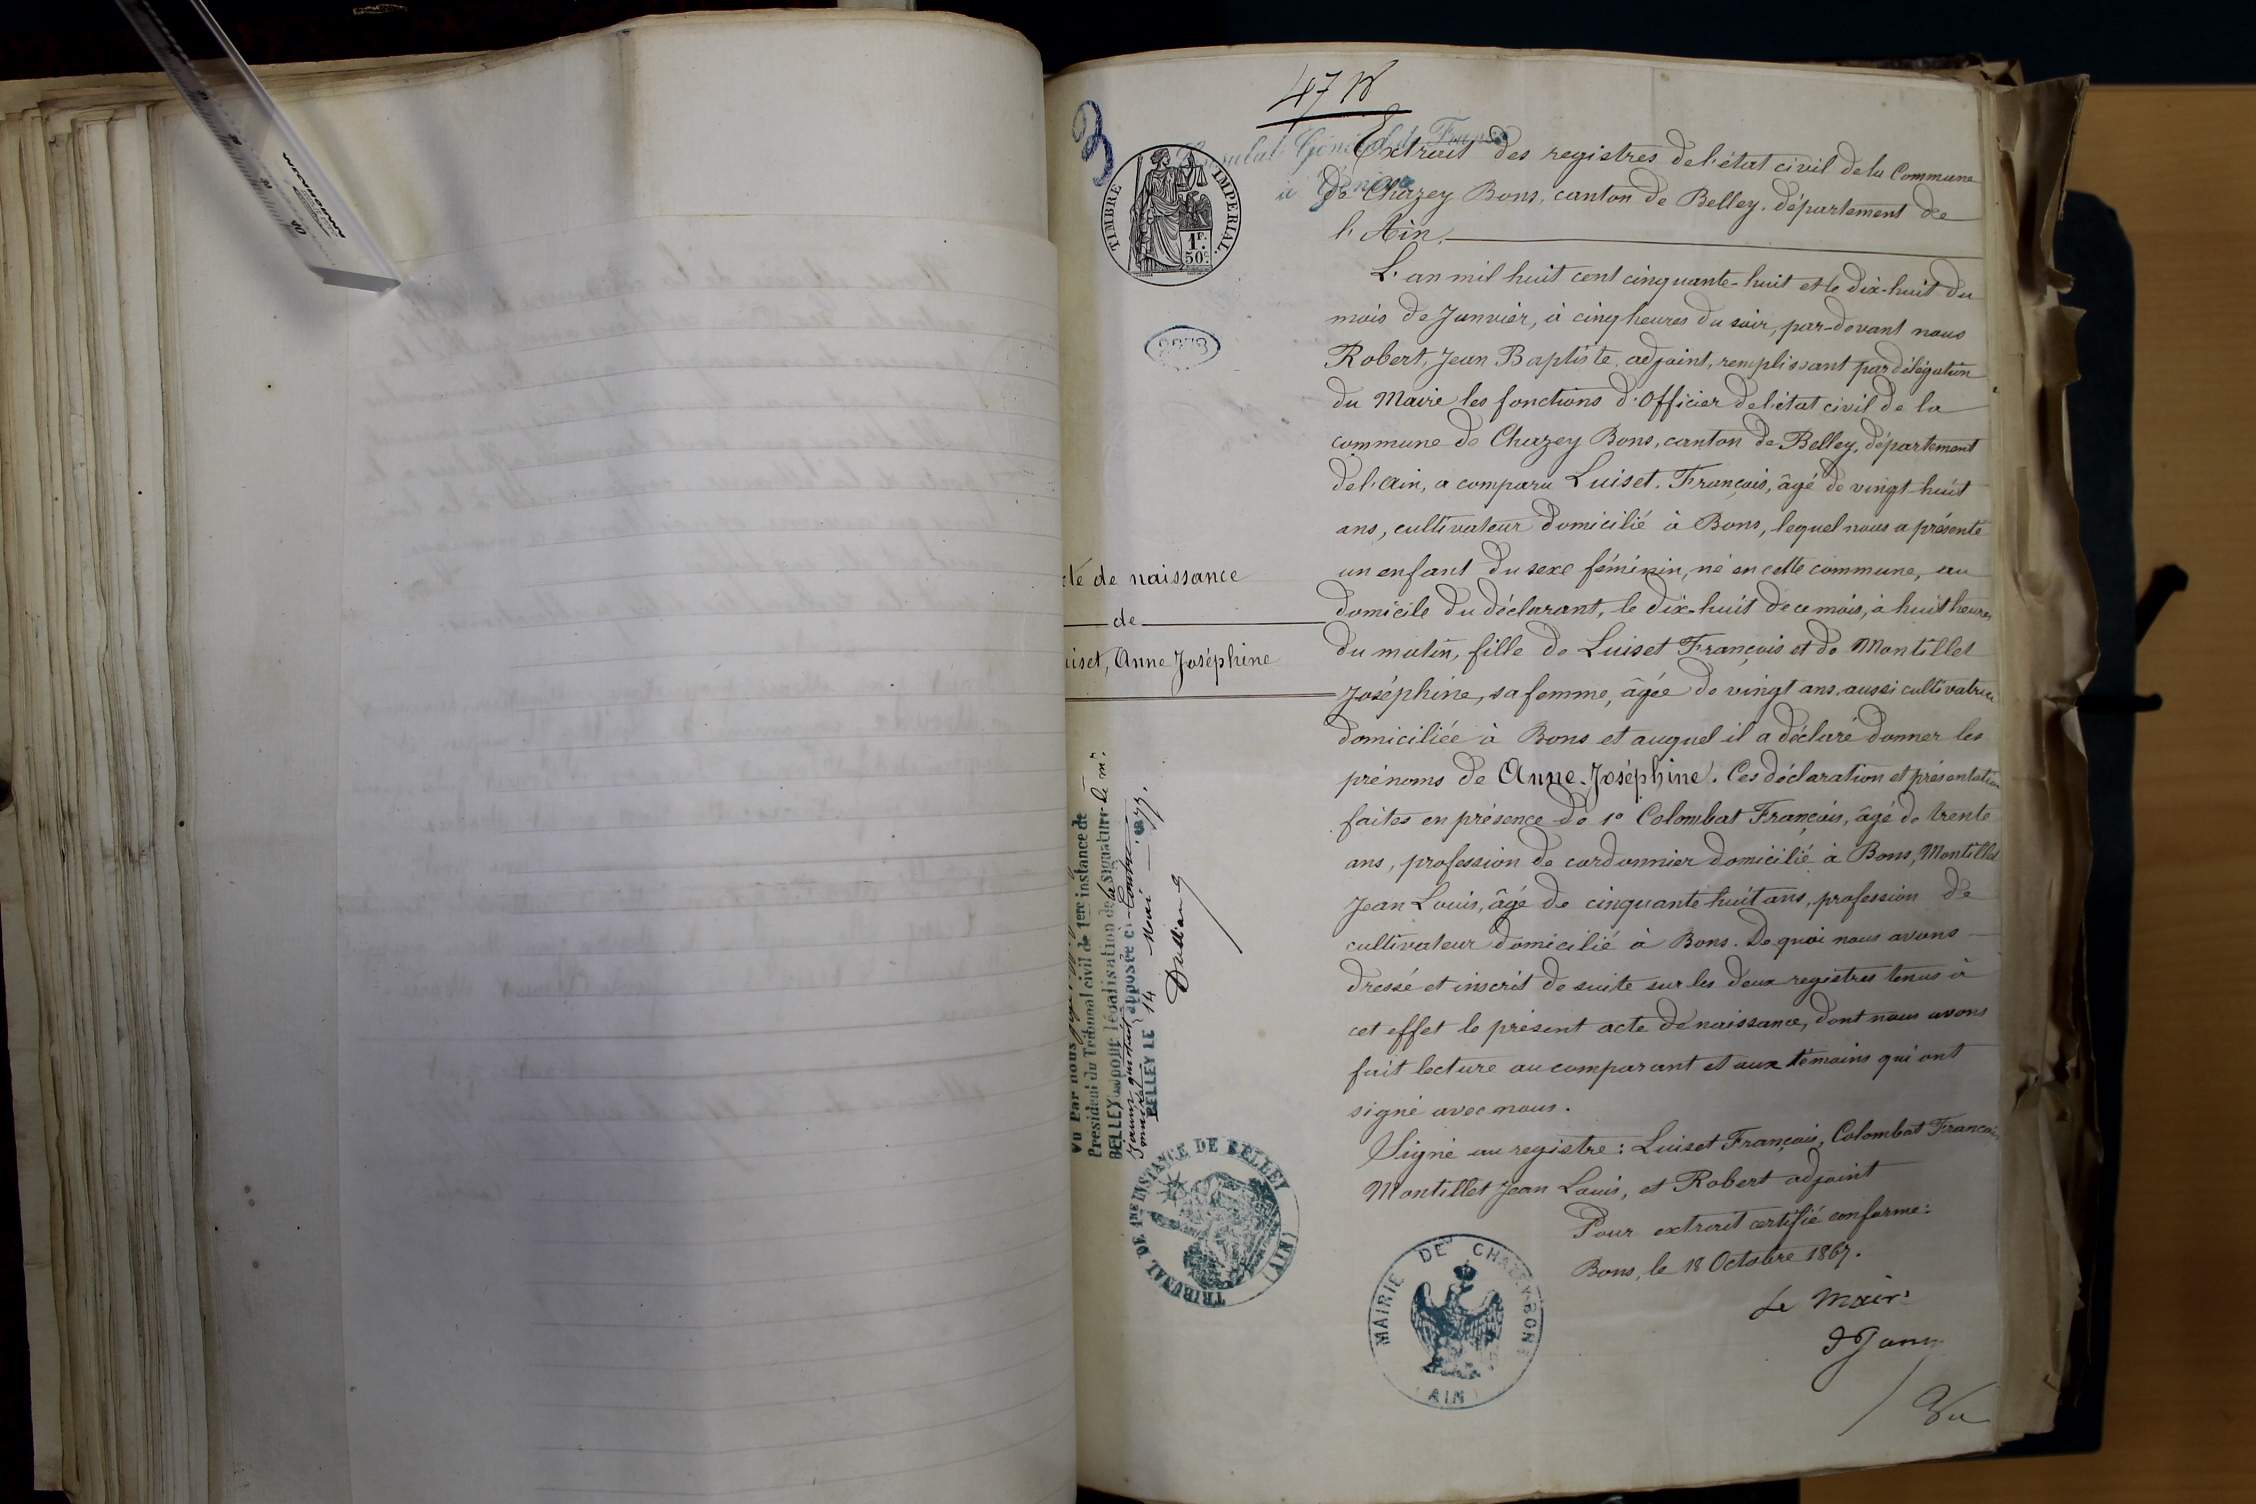 47
3
Consulat Général de France
à
TIMBRE IMPERIAL
1F.
50c.
Extrait des registres de l'état civil de la Commune
de Chazey Bons, canton de Belley, département de
l'Ain.
L'an mil huit cent cinquante-huit et le dix-huit du
mois de Janvier, à cinq heures du soir, par-devant nous
Robert, Jean Baptiste, adjoint, remplissant par délégation
du Maire les fonctions d'Officier de l'état civil de la
commune de Chazey Bons, canton de Belley, département
de l'Ain, a comparu Luiset, François, âgé de vingt-huit
ans, cultivateur domicilié à Bons, lequel nous a présenté
un enfant du sexe féminin, né en cette commune, au
domicile du déclarant, le dix-huit de ce mois, à huit heures
du matin, fille de Luiset François et de Montillet
Joséphine, sa femme, âgée de vingt ans, aussi cultivatrice
domiciliée à Bons et auquel il a déclaré donner les
prénoms de Anne-Joséphine. Ces déclaration et présentation
faites en présence de 1º Colombat François, âgé de trente
ans, profession de cordonnier domicilié à Bons, Montillet
Jean Louis, âgé de cinquante huit ans, profession de
cultivateur domicilié à Bons. De quoi nous avons
dressé et inscrit de suite sur les deux registres tenus à
cet effet le présent acte de naissance, dont nous avons
fait lecture au comparant et aux témoins qui ont
signé avec nous.
Signé au registre: Luiset François, Colombat François,
Montillet Jean Louis, et Robert adjoint
Pour extrait certifié conforme:
Bons, le 18 Octobre 1867.
Le Maire
Vu
cte de naissance
de
uiset, Anne Joséphine
Vu Par nous
Président du Tribunal civil de 1ere instance de
BELLEY pour légalisation de la signature de mr.
apposée ci-contre
BELLEY LE 14 mai 1877.
TRIBUNAL DE 1RE INSTANCE DE BELLEY (AIN)
MAIRIE DE CHAZEY-BONS
(AIN)